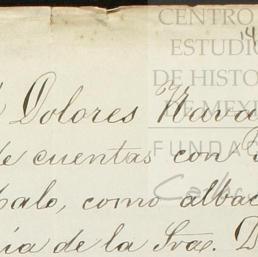 CENTRO
ESTUDI
DE HISTO
DE MEXI
FUNDAC
Dolores Nava
de cuentas con
palo, como albac
ia de la Sra. D